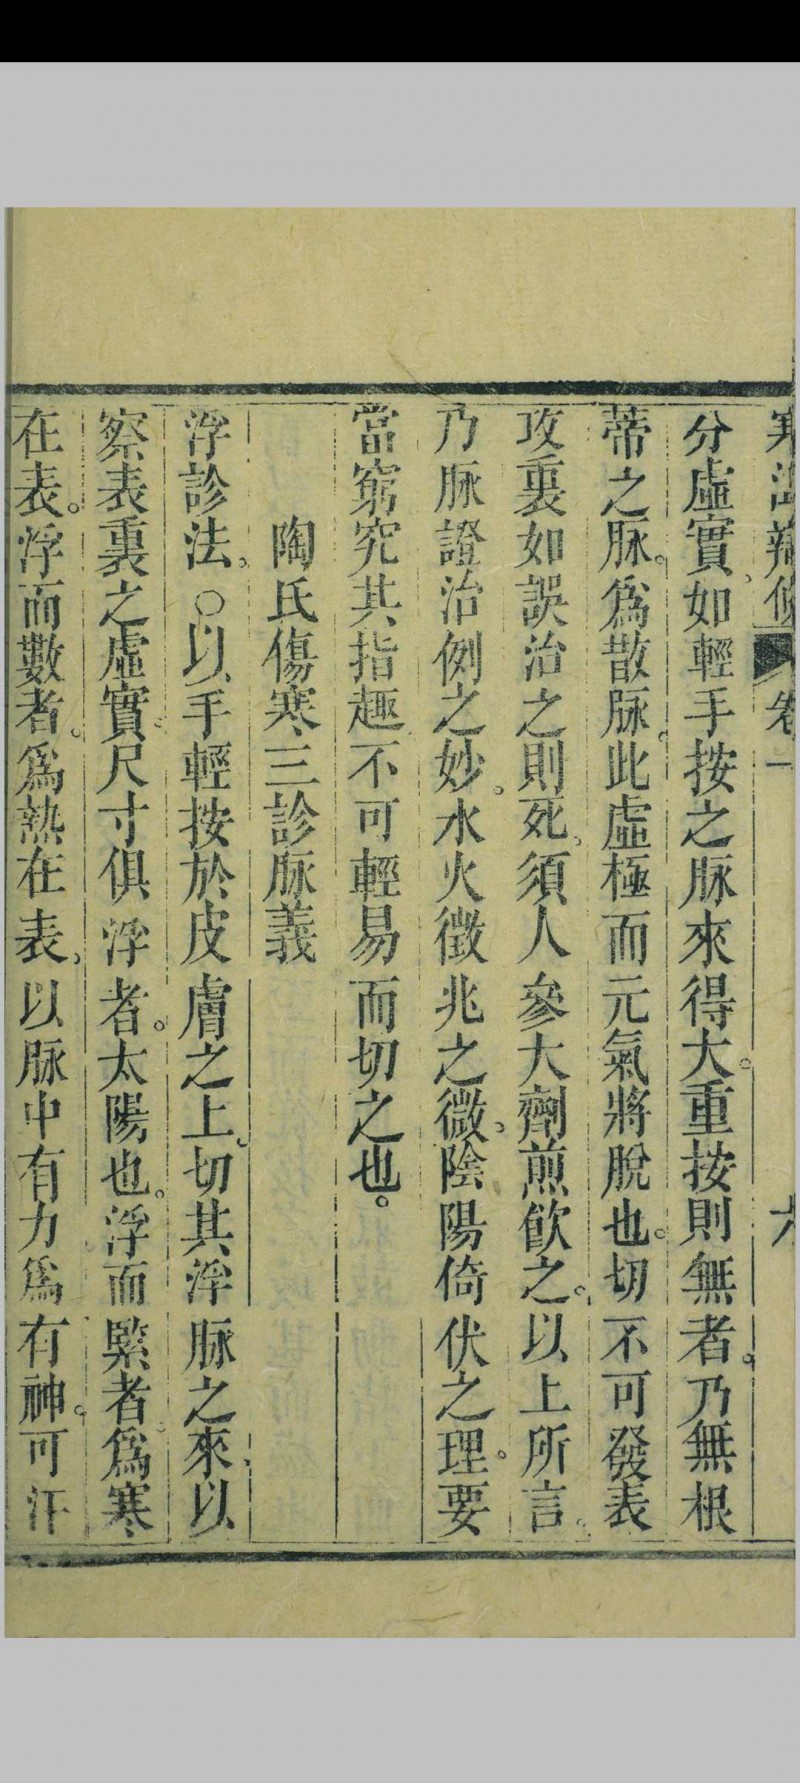 卷一
六
分虛實如輕手按之脉來得大。重按則無者。乃無根
蒂之脉。爲散脉。此虛極而元氣將脫也。切不可發表
攻裏如誤治之則死。須人參大劑煎飮之。以上所言。
乃脉證治例之妙。水火徵兆之微。陰陽倚伏之理。要
當窮究其指趣不可輕易而切之也。
陶氏傷寒三診脉義
浮診法。○以手輕按於皮膚之上。切其浮脉之來。以
察表裏之虛實。尺寸俱浮者。太陽也。浮而緊者。爲寒
在表。浮而數者。爲熱在表。以脉中有力爲有神。可汗